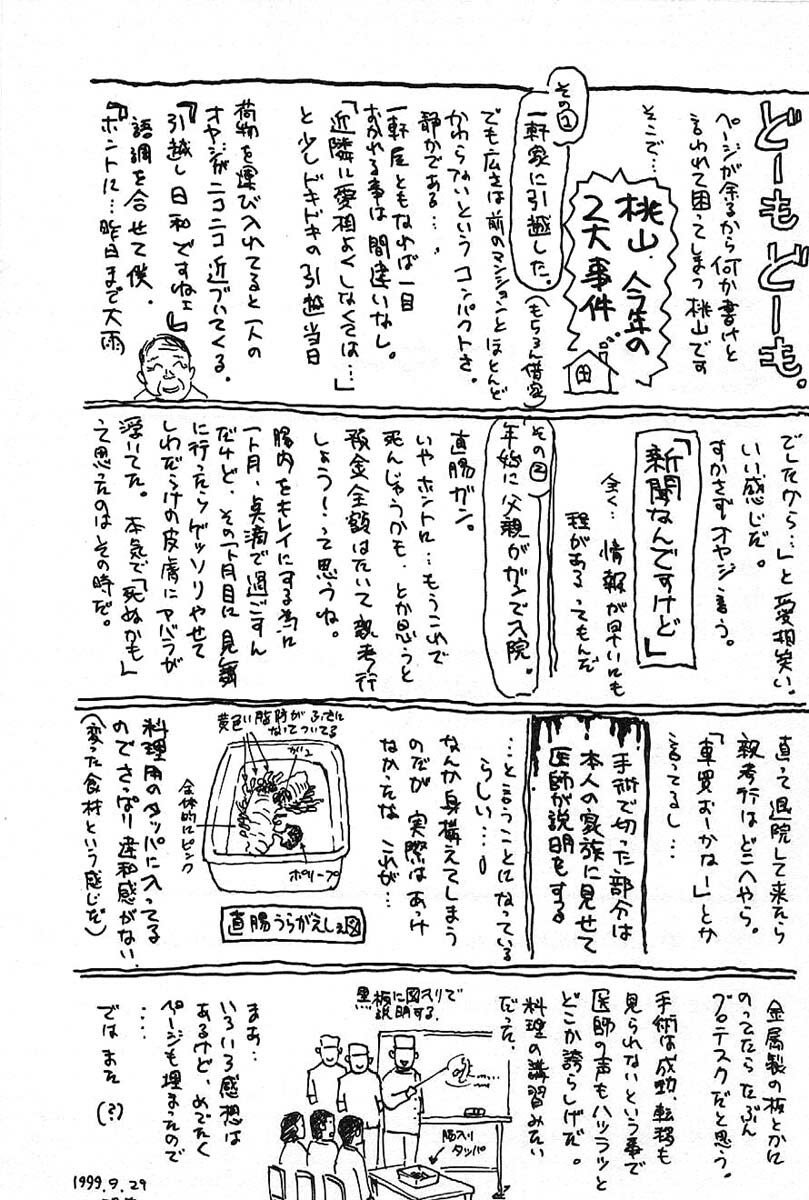 どーもどーも。
ページが余るから何か書けと
言われて困ってしまう桃山です
そこで…
桃山、今年の
2大事件
その1
一軒家に引越した。
(もちろん借家)
でも広さは前のマンションとほとんど
かわらないというコンパクトさ。
静かである…。
一軒屋ともなれば一目
おかれる事は間違いなし。
「近隣に愛相よくしなくては…」
と少しドキドキの引越当日
荷物を運び入れてると一人の
オヤジがニコニコ近づいてくる。
『引越し日和ですねェ』
語調を合せて僕、
『ホントに…昨日まで大雨
でしたから…」と愛相笑い。
いい感じだ。
すかさずオヤジ言う。
「新聞なんですけど」
全く…情報が早いにも
程があるってもんだ
その2
年始に父親がガンで入院。
直腸ガン。
いやホントに…もうこれで
死んじゃうかも、とか思うと
預金全額はたいて親孝行
しょう!って思うね。
腸内をキレイにする為に
一ヶ月、点滴で過ごすん
だけど、その1ヶ月目に見舞
に行ったらゲッソリやせて
しわだらけの皮膚にアバラが
浮いてた。本気で「死ぬかも」
って思ったのはその時だ。
直って退院して来たら
親孝行はどこへやら。
「車買おーかなー」とか
言ってるし…
手術で切った部分は
本人の家族に見せて
医師が説明をする
…と言うことになっている
らしい…。
なんか身構えてしまう
のだが実際はあっけ
なかったな これが…
黄色い脂肪がふさふさに
なってついてる
ガン
全体的にピンク
ポリープ
直腸うらがえしの図
料理用のタッパに入ってる
のでさっぱり違和感がない
(変った食材という感じだ)
金属製の板とかに
のってたらたぶん
グロテスクだと思う。
手術は成功、転移も
見られないという事で
医師の声もハツラツと
どこか誇らしげだ。
料理の講習みたい
だった。
黒板に図入りで
説明する。
腸入り
タッパ
まぁ…
いろいろ感想は
あるけど、めでたく
ページも埋まったので
…
ではまた (?)
1999.9.29